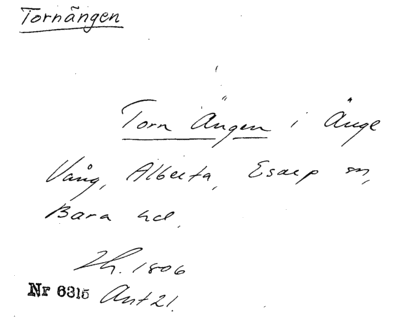 Tornängen
Torn Ängen i Änge
Vång, Alberta, Esarp sn,
Bara hd.
Lh. 1806
Nr 6315 Ant 21.